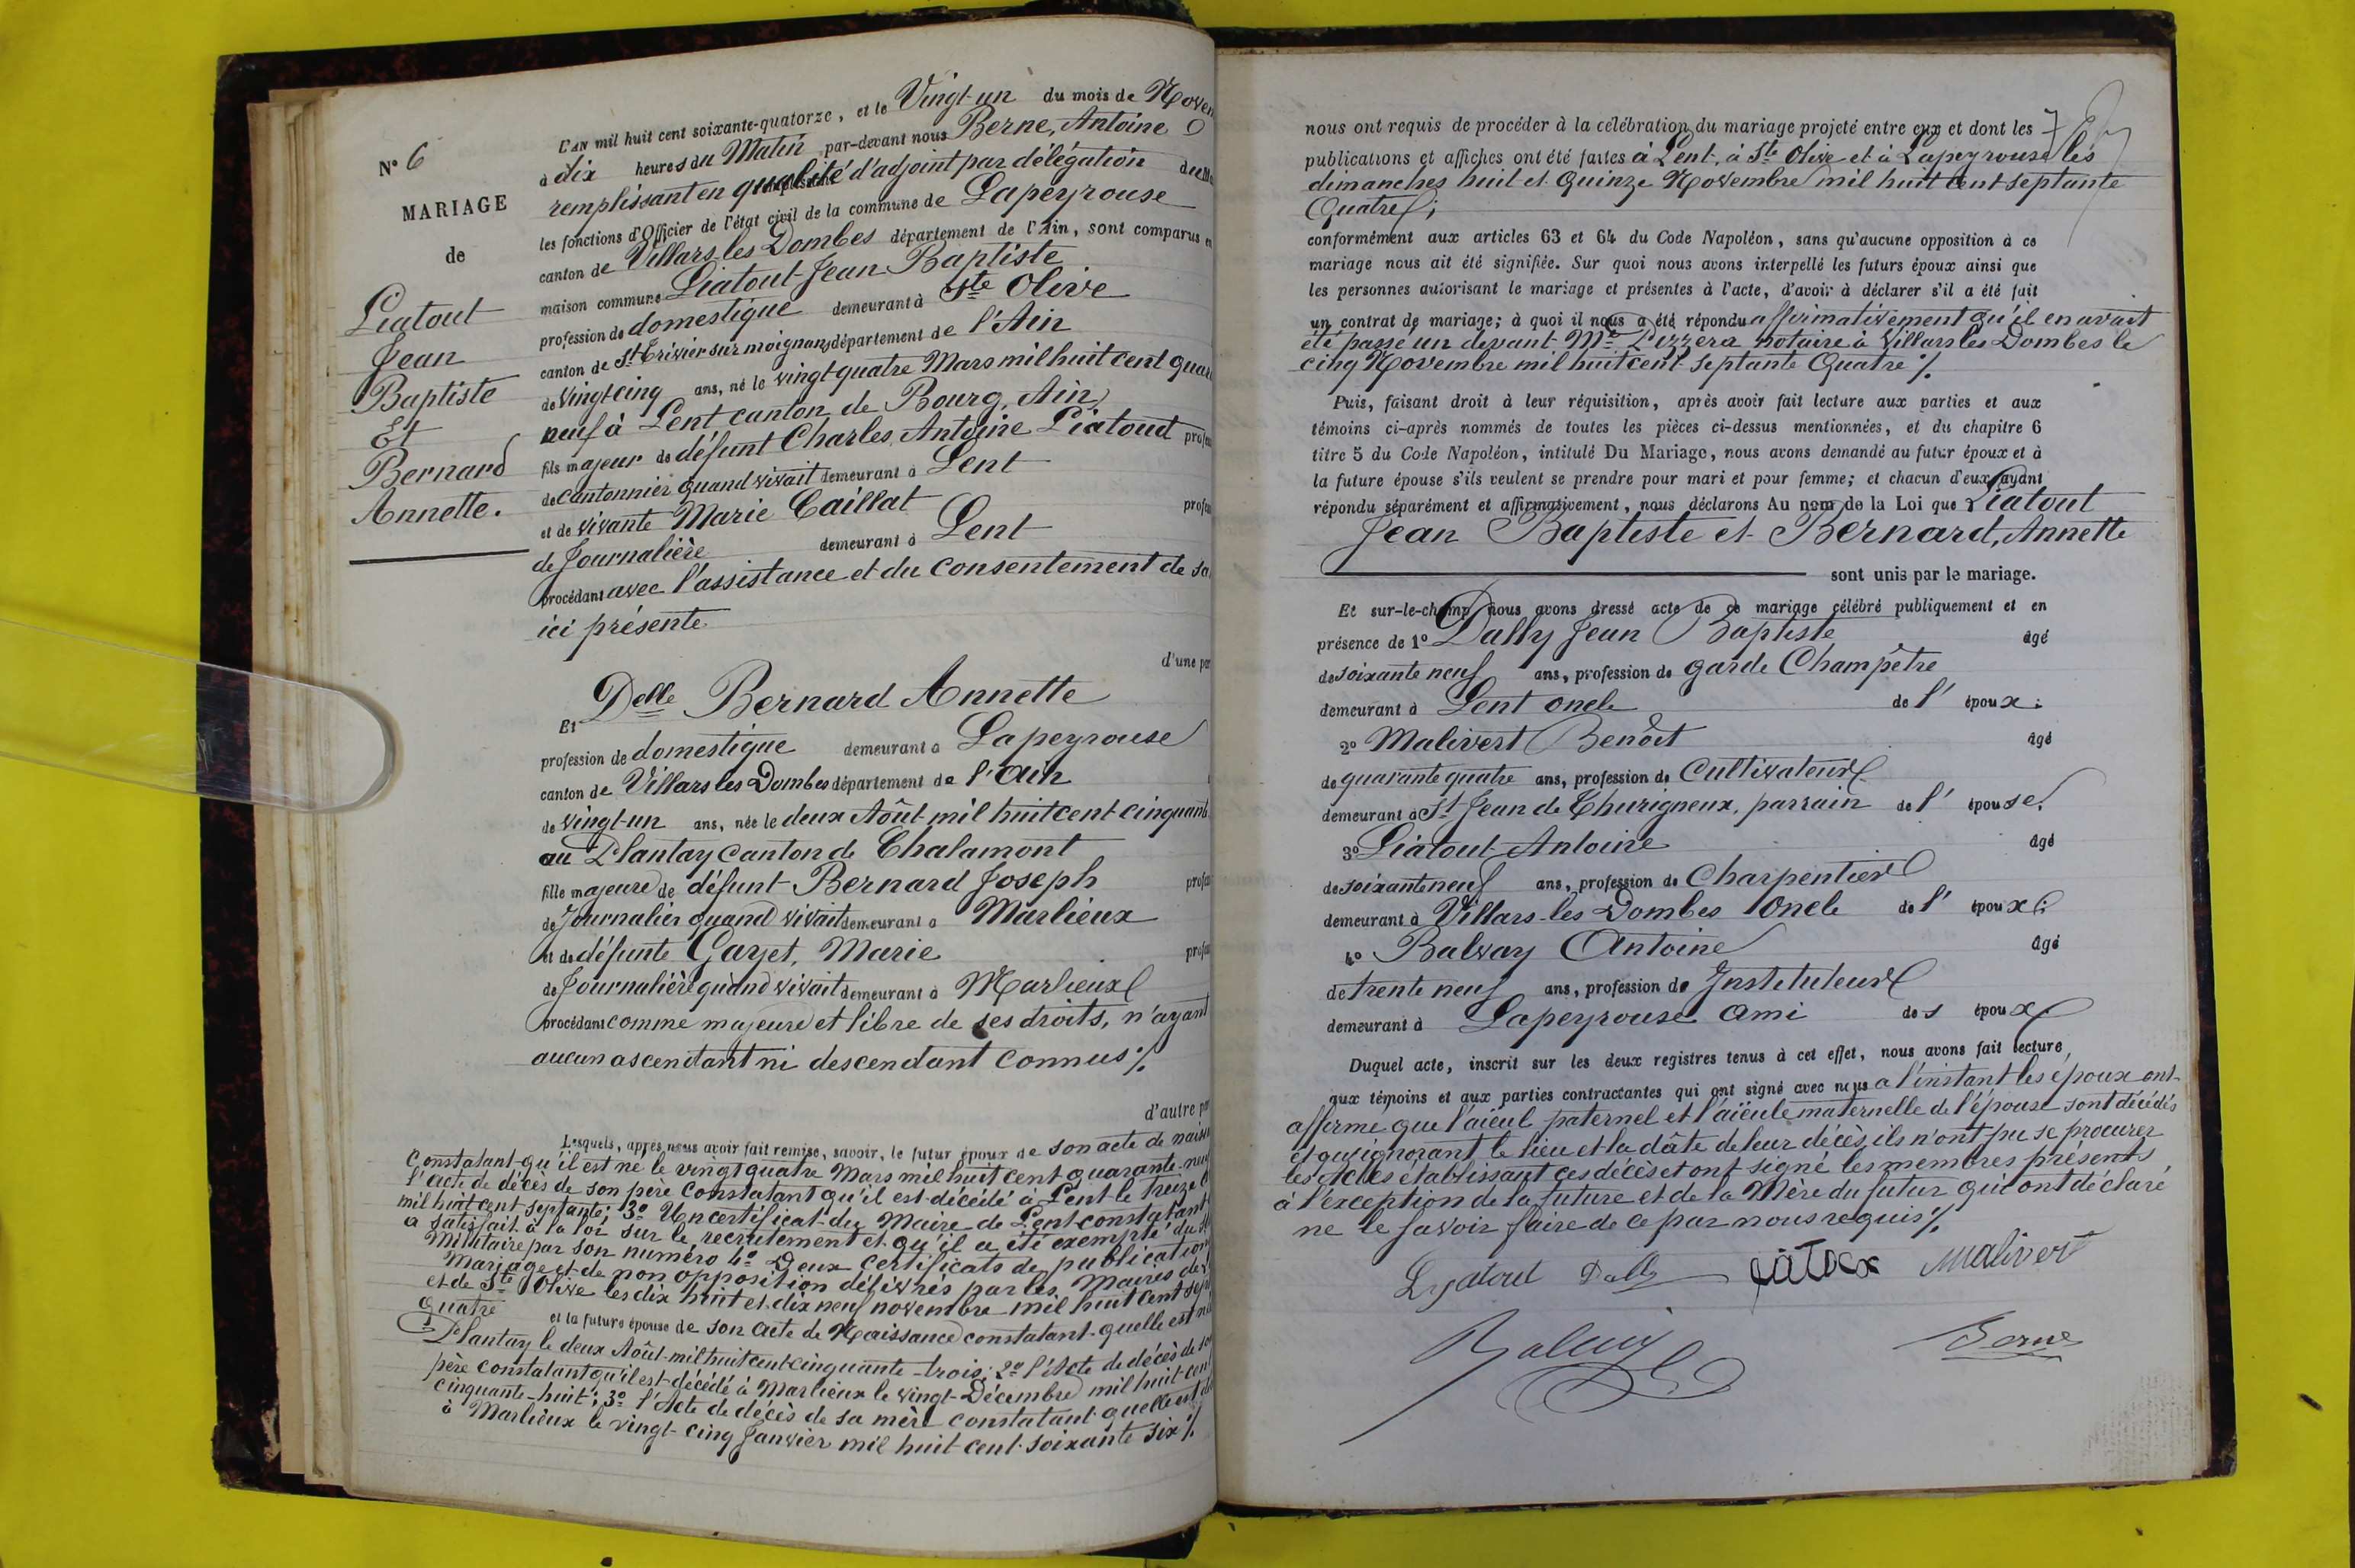 N° 6
MARIAGE
de
Liatout
Jean
Baptiste
Et
Bernard
Annette.
L'an mil huit cent soixante-quatorze, et le Vingt-un du mois de Noven
à dix heures du Matin par-devant nous Berne, Antoine
remplissant en qualité d'adjoint par délégation
les fonctions d'Officier de l'état civil de la commune de Lapeyrouse
canton de Villars-les Dombes département de l'Ain, sont comparus en
maison commune Liatout Jean Baptiste
profession de domestique demeurant à Ste Olive
canton de St Trivier sur moignans département de l'Ain
de Vingt cinq ans, né le vingt-quatre Mars mil huit cent quar
neuf à Lent canton de Bourg, Ain,
fils majeur de défunt Charles, Antoine Liatoud profes
de cantonnier quand vivait demeurant à Lent
et de vivante Marie Caillat profes
de Journalière demeurant à Lent
procédant avec l'assistance et du consentement de sa
ici présente
d'une par
Et Delle Bernard Annette
profession de domestique demeurant à Lapeyrouse
canton de Villars les Dombes département de l'Ain
de vingt-un ans, née le deux Aôut mil huit cent cinquant
au Plantay canton de Chalamont
fille majeure de défunt Bernard Joseph profes
de Journalier quand vivait demeurant à Marlieux
et de défunte Gayet, Marie profes
de Journalière quand vivait demeurant à Marlieux
procédant comme majeure et libre de ses droits, n'ayant
aucun ascendant ni descendant connus %
d'autre par
Lesquels, après nous avoir fait remise, savoir, le futur époux de son acte de naiss
Constatant qu'il est né le vingt quatre Mars mil huit cent quarante-neuf
l'acte de décès de son père constatant qu'il est décédé à Lent le treize
mil huit cent septante; 3° Un certificat du Maire de Lent constatant
a satisfait à la loi sur le recrutement et qu'il a été exempté du
Militaire par son numéro 4° Deux certificats de publication
Mariage et de non opposition délivrés par les Maires de
et de Ste Olive les dix huit et dix neuf novembre mil huit cent sept
quatre et la future épouse de son acte de Naissance constatant quelle est né
Plantay le deux Aôut mil huit cent cinquante-trois; 2° l'Acte de décès de so
père constatant qu'il est décédé à Marlieux le vingt Décembre mil huit cen
cinquante-huit; 3° l'Acte de décès de sa mère constatant quelle est dé
à Marlieux le vingt-cinq Janvier mil huit cent soixante six %
7
nous ont requis de procéder à la célébration du mariage projeté entre eux et dont les
publications et affiches ont été faites à Lent, à Ste Olive et à Lapeyrouse les
dimanches huit et Quinze Novembre mil huit cent septante
Quatre;
conformément aux articles 63 et 64 du Code Napoléon, sans qu'aucune opposition à ce
mariage nous ait été signifiée. Sur quoi nous avons interpellé les futurs époux ainsi que
les personnes autorisant le mariage et présentes à l'acte, d'avoir à déclarer s'il a été fait
un contrat de mariage; à quoi il nous a été répondu affirmativement qu'il en avait
été passé un devant Me Pizzera notaire à Villars les Dombes le
cinq Novembre mil huit cent septante Quatre %
Puis, faisant droit à leur réquisition, après avoir fait lecture aux parties et aux
témoins ci-après nommés de toutes les pièces ci-dessus mentionnées, et du chapitre 6
titre 5 du Code Napoléon, intitulé Du Mariage, nous avons demandé au futur époux et à
la future épouse s'ils veulent se prendre pour mari et pour femme; et chacun d'eux ayant
répondu séparément et affirmativement, nous déclarons Au nom de la Loi que Liatout
Jean Baptiste et Bernard, Annette
sont unis par le mariage.
Et sur-le-champ nous avons dressé acte de ce mariage célébré publiquement et en
présence de 1° Dally Jean Baptiste âgé
de soixante neuf ans, profession de garde Champêtre
demeurant à Lent oncle de l'époux;
2° Malivert Benôit âgé
de quarante quatre ans, profession de Cultivateur
demeurant à St Jean de Thurigneux, parrain de l'épouse,
3° Liatout Antoine âgé
de soixante neuf ans, profession de Charpentier
demeurant à Villars-les Dombes Oncle de l'époux;
4° Balvay Antoine âgé
de trente neuf ans, profession de Instituteur
demeurant à Lapeyrouse ami des époux
Duquel acte, inscrit sur les deux registres tenus à cet effet, nous avons fait lecture
aux témoins et aux parties contractantes qui ont signé avec nous a l'instant les époux ont
affirmé que l'aïeul paternel et l'aïeule maternelle de l'épouse sont décédés
et qu'ignorant le lieu et la dâte de leur décès, ils n'ont pu se procurer
les actes établissant ces décès et ont signé les membres présents
à l'exception de la future et de la Mère du futur qui ont déclaré
ne le savoir faire de ce par nous requis %
Lyatout Dally Liatoux Malivert
Balvay Berne